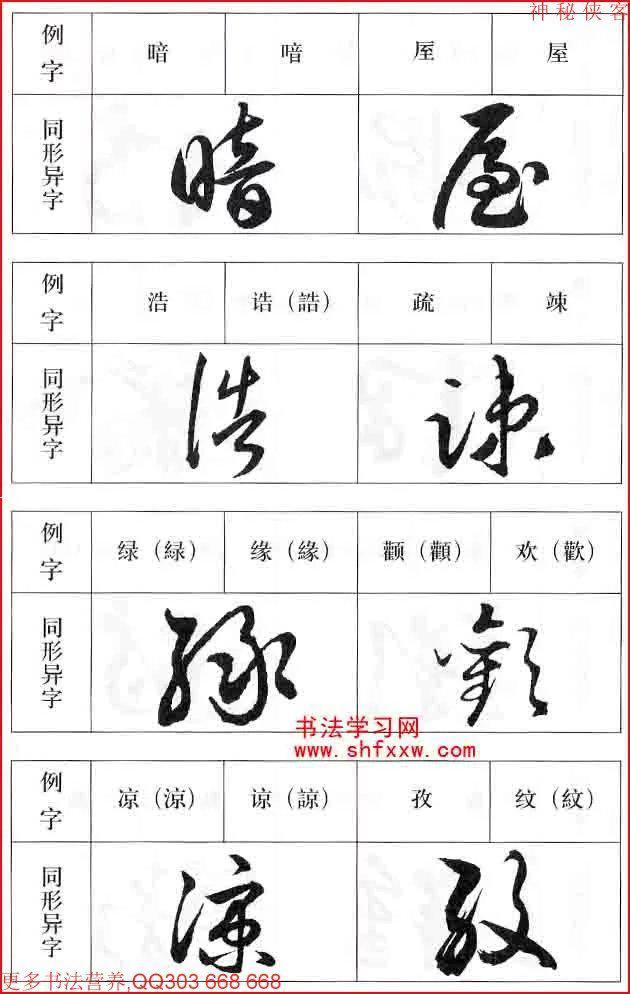 神秘侠客
例字 暗 喑 厔 屋
同形异字 暗 屋
例字 浩 诰（誥） 疏 竦
同形异字 浩 疎
例字 绿（緑） 缘（緣） 颧（顴） 欢（歡）
同形异字 緣 歡
书法学习网
www.shfxxw.com
例字 凉（涼） 谅（諒） 孜 纹（紋）
同形异字 涼 孜
更多书法营养,QQ303 668 668